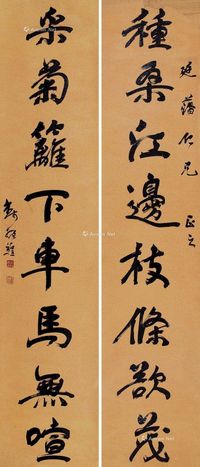 仁兄 正之
種桑江邊枝條欲茂
采菊籬下車馬無喧